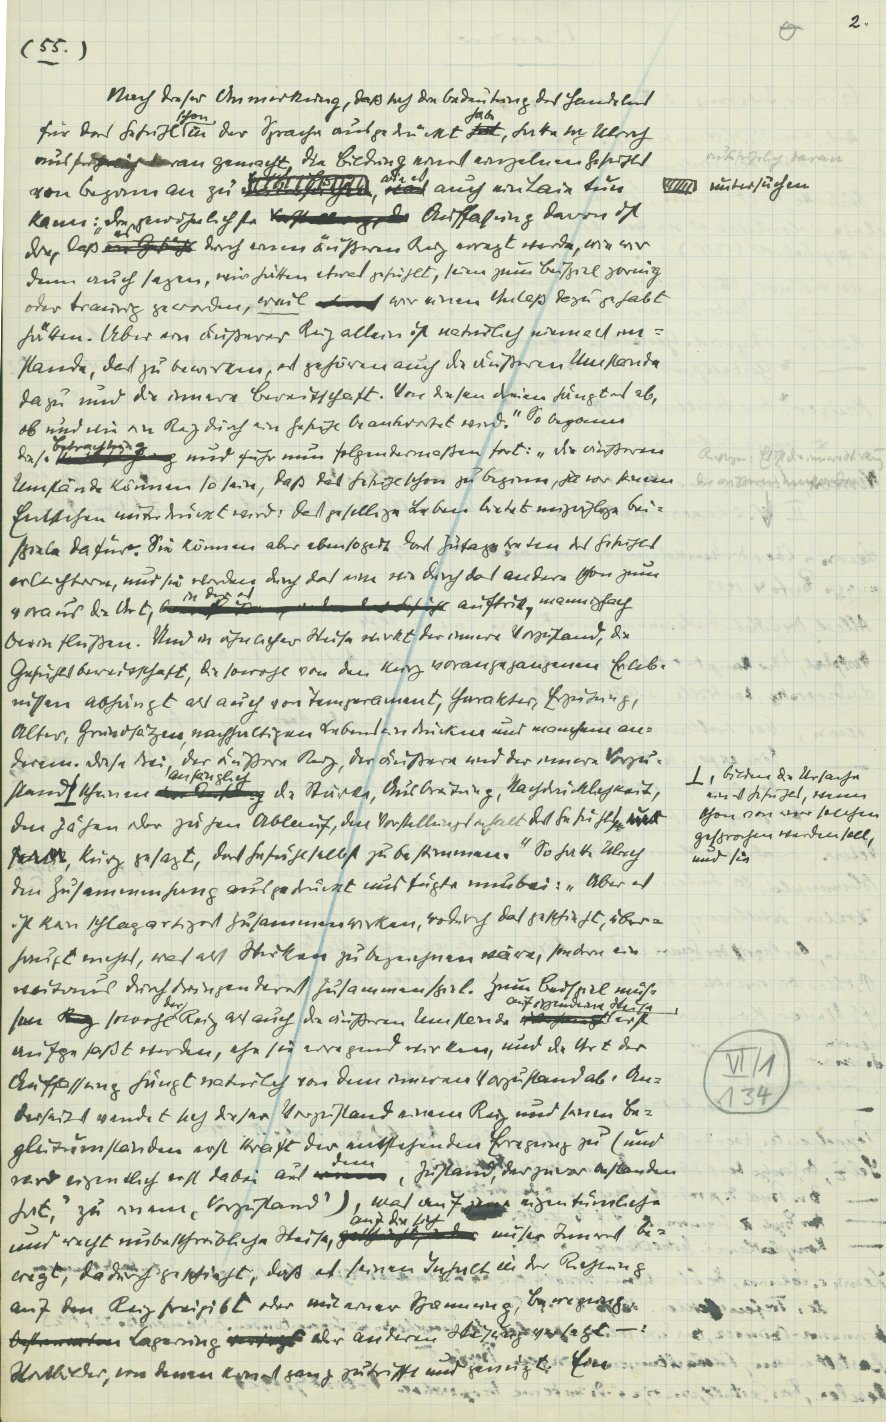 2.
(55.)
Nach dieser Anmerkung, daß sich die Bedeutung des Handelns
für das Gefühl schon in der Sprache ausgedrückt habe, hatte sich Ulrich
daran gemacht, die Bildung eines einzelnen Gefühls
von Beginn an zu untersuchen, wie es auch ein Laie tun
kann: „die gewöhnlichste Auffassung davon ist
die, daß es durch einen äußeren Reiz erregt werde, wie wir
denn auch sagen, wir hätten etwas gefühlt, seien zum Beispiel zornig
oder traurig geworden, weil wir einen Anlaß dazu gehabt
hätten. Aber ein äußerer Reiz allein ist natürlich niemals im-
stande, das zu bewirken, es gehören auch die äußeren Umstände
dazu und die innere Bereitschaft. Von diesen dreien hängt es ab,
ob und wie ein Reiz durch ein Gefühl beantwortet wird." So begann
diese Betrachtung und fuhr nun folgendermaßen fort: „die äußeren
Umstände können so sein, daß das Gefühl schon zu Beginn, ja vor seinem
Entstehen unterdrückt wird: das gesellige Leben bietet unzählige Bei-
spiele dafür. Sie können aber ebensogut das Zutagetreten des Gefühls
erleichtern, und sie werden durch das eine wie durch das andere schon zum
voraus die Art, in der es auftritt, mannigfach
beeinflußen. Und in ähnlicher Weise wirkt der innere Vorzustand, die
Gefühlsbereitschaft, die sowohl von den kurz vorangegangenen Erleb-
nissen abhängt als auch von Temperament, Charakter, Erziehung,
Alter, Grundsätzen, nachhaltigen Lebenseindrücken und manchem an-
derem. Diese drei, der äußere Reiz, der äußere und der innere Vorzu-
stand ⊥ scheinen anfänglich die Stärke, Ausbreitung, Nachdrücklichkeit,
⊥, bilden die Ursache
eines Gefühls, wenn
schon von einer solchen
gesprochen werden soll,
und sie
den jähen oder zähen Ablauf, den Vorstellungsinhalt des Gefühls,
kurz gesagt, das Gefühl selbst zu bestimmen." So hatte Ulrich
den Zusammenhang ausgedrückt und fügte nun bei: „Aber es
ist kein schlagartiges Zusammenwirken, wodurch das geschieht, über-
haupt nichts, was als Wirken zu bezeichnen wäre, sondern ein
weitaus durchdringenderes Zusammenspiel. Zum Beispiel müs-
sen sowohl der Reiz als auch die äußeren Umstände auf irgendeine Weise erst
aufgefaßt werden, ehe sie erregend wirken, und die Art der
Auffassung hängt natürlich von dem inneren Vorzustand ab. An-
derseits wendet sich dieser Vorzustand einem Reiz und seinen Be-
gleitumständen erst kraft der entstehenden Erregung zu (und
wird eigentlich erst dabei aus dem, Zustand, der zuvor bestanden
hat,' zu einem ‚Vorzustand'), was auf eigentümliche
und recht unbeschreibliche Weise, auf die sich unser Inneres be-
wegt, dadurch geschieht, daß es seinen Inhalt in der Richtung
auf den Reiz freigibt oder mit einer Spannung, Bewegung,
Lagerung oder anderen versagt —:
Wortbilder, von denen keines ganz zutrifft und genügt. Eine
VI/1
134